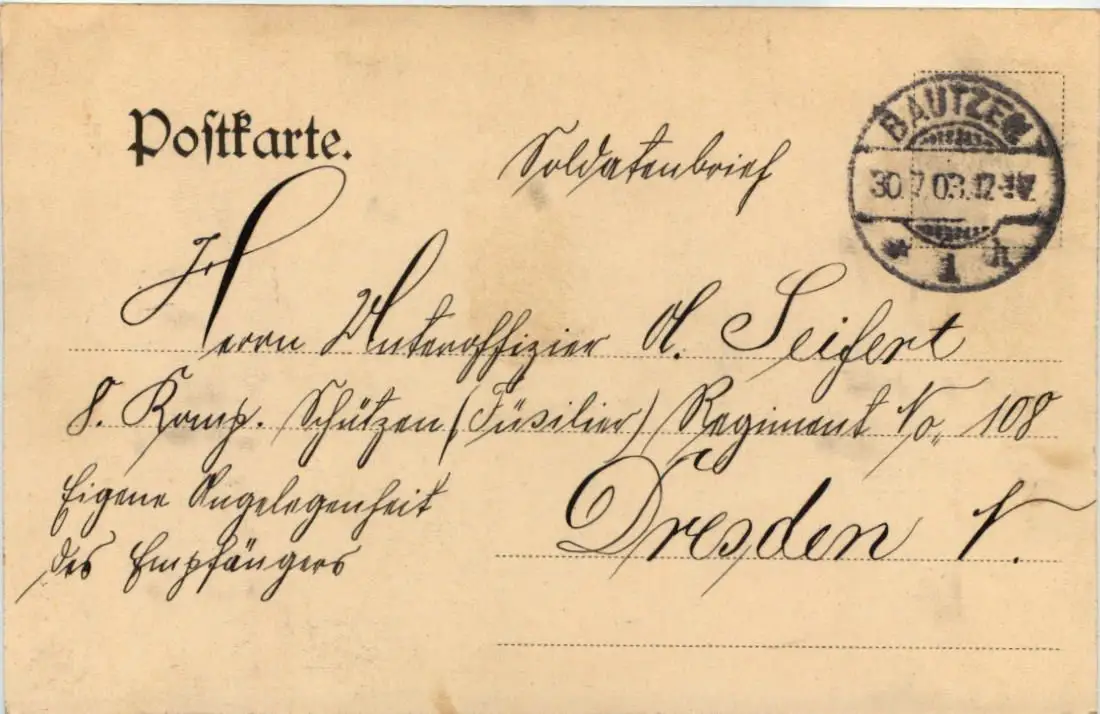 Postkarte.
Soldatenbrief
BAUTZEN
30.7.03.12-
1
Herrn Unteroffizier A. Seifert
8. Komp. Schützen (Füsilier) Regiment No. 108
Eigene Angelegenheit
des Empfängers
Dresden N.